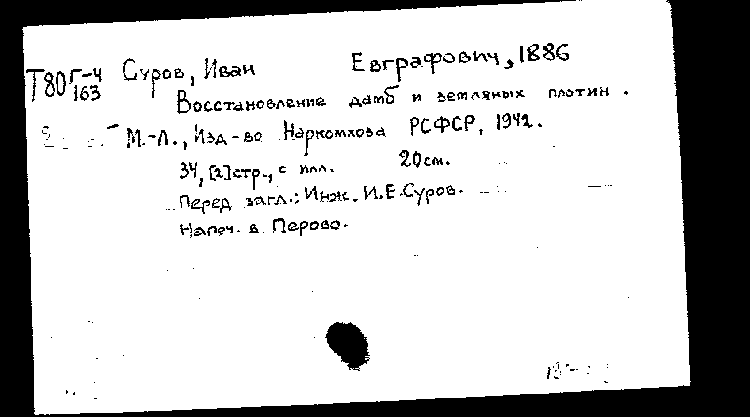 Т80 Г-4/163 Суров, Иван Евграфович, 1886
Восстановление дамб и земляных плотин.
М.-Л., Изд-во Наркомхоза РСФСР, 1942.
34, [2] стр., с илл. 20 см.
Перед загл.: Инж. И.Е. Суров.
Напеч. в Перово.